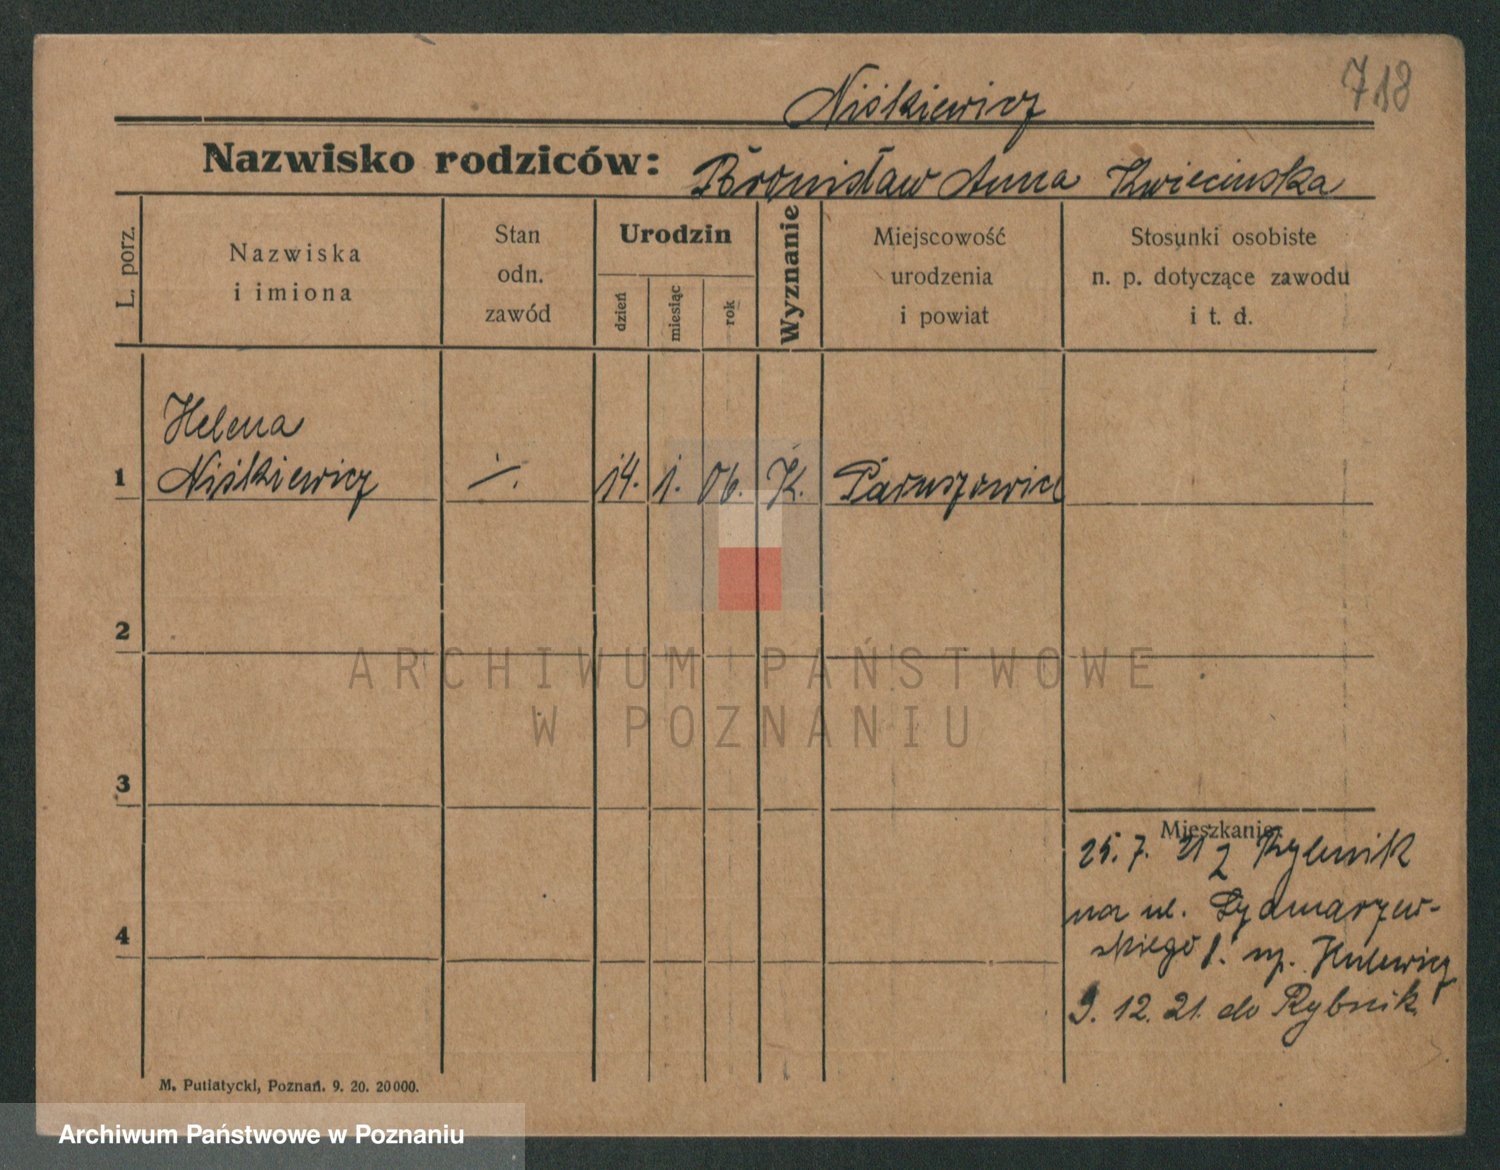 718
Niśkiewicz
Nazwisko rodziców: Bronisław Anna Kwiecinska
L. porz.
Nazwiska
i imiona
Stan
odn.
zawód
Urodzin
dzień
miesiąc
rok
Wyznanie
Miejscowość
urodzenia
i powiat
Stosunki osobiste
n. p. dotyczące zawodu
i t. d.
Helena
1 Niśkiewicz ·/. 14. 1. 06. K. Paruszowice
2
ARCHIWUM PAŃSTWOWE
W POZNANIU
3
Mieszkanie:
25. 7. 21 z Rybnik
na ul.
skiego 1. np. Hulewicz
4
9. 12. 21. do Rybnik
M. Putiatycki, Poznań. 9. 20. 20000.
Archiwum Państwowe w Poznaniu